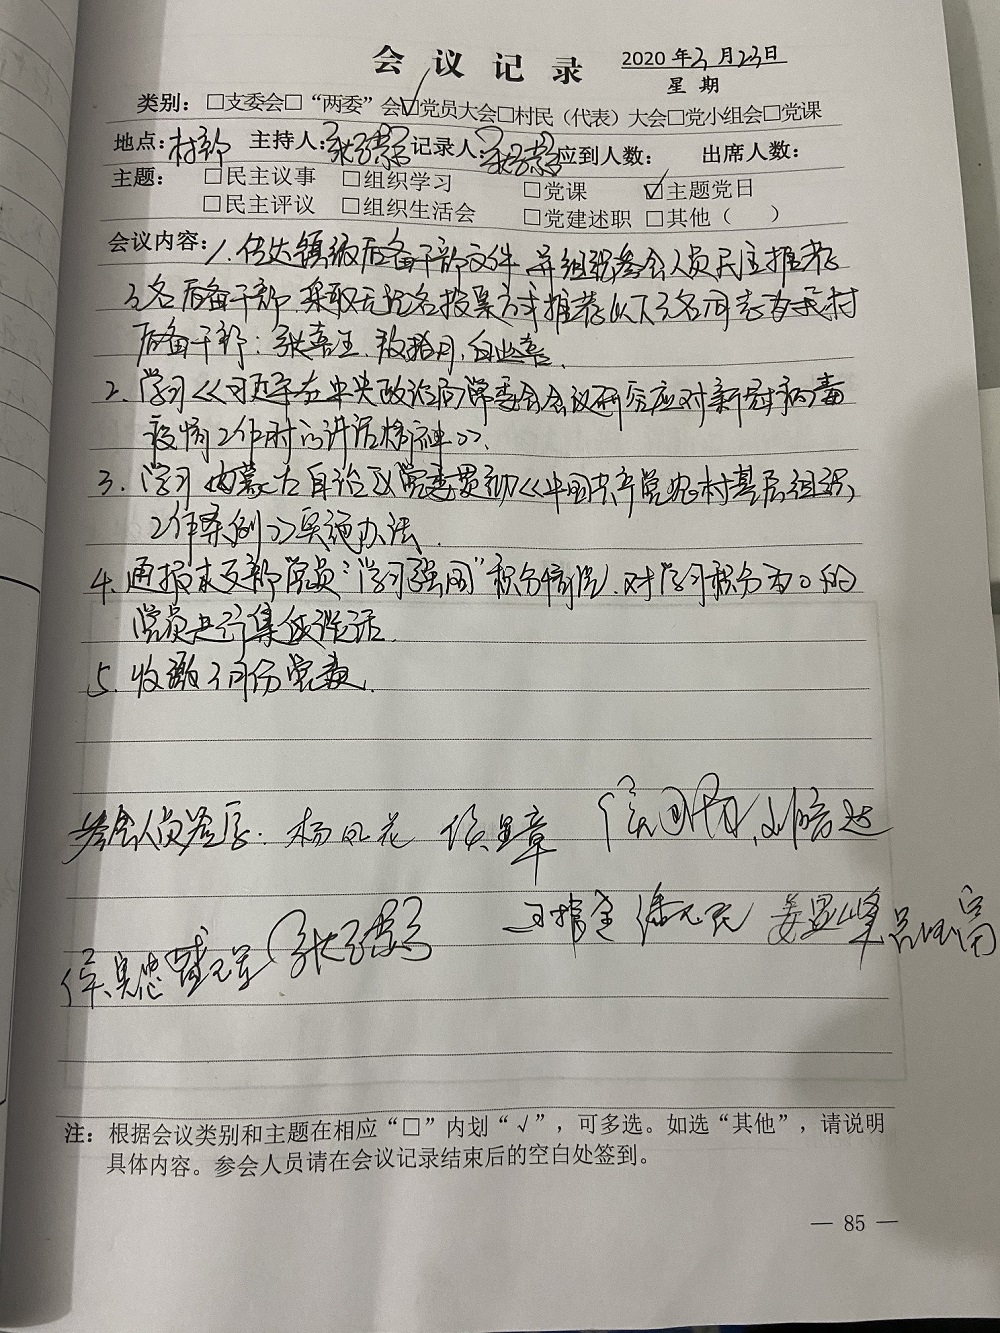 会议记录 2020年3月23日
星期
类别：□支委会□“两委”会☑党员大会□村民（代表）大会□党小组会□党课
地点：村部 主持人： 记录人： 应到人数： 出席人数：
主题：□民主议事 □组织学习 □党课 ☑主题党日
□民主评议 □组织生活会 □党建述职 □其他（ ）
会议内容：1.传达镇级后备干部文件，并组织参会人员民主推荐
3名后备干部，采取无记名投票方式推荐以下3名同志为我村
后备干部：
2.学习《习近平在中央政治局常委会会议研究应对新冠病毒
疫情工作时的讲话精神》.
3.学习内蒙古自治区党委贯彻《中国共产党农村基层组织
工作条例》实施办法.
4.通报本支部党员“学习强国”积分情况，对学习积分为0的
党员进行集体谈话.
5.收缴3月份党费.
参会人员签字：杨凤花
注：根据会议类别和主题在相应“□”内划“√”，可多选。如选“其他”，请说明
具体内容。参会人员请在会议记录结束后的空白处签到。
— 85 —